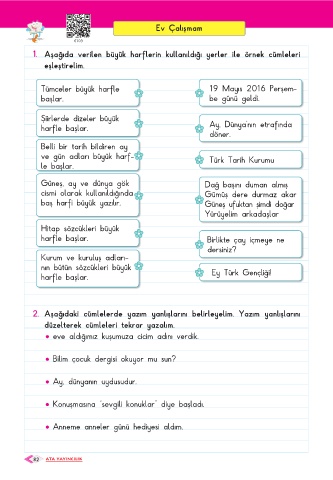 Ev Çalışmam
1. Aşağıda verilen büyük harflerin kullanıldığı yerler ile örnek cümleleri
eşleştirelim.
Tümceler büyük harfle
başlar.
Şiirlerde dizeler büyük
harfle başlar.
Belli bir tarih bildiren ay
ve gün adları büyük harf-
le başlar.
Güneş, ay ve dünya gök
cismi olarak kullanıldığında
baş harfi büyük yazılır.
Hitap sözcükleri büyük
harfle başlar.
Kurum ve kuruluş adları-
nın bütün sözcükleri büyük
harfle başlar.
19 Mayıs 2016 Perşem-
be günü geldi.
Ay, Dünya'nın etrafında
döner.
Türk Tarih Kurumu
Dağ başını duman almış
Gümüş dere durmaz akar
Güneş ufuktan şimdi doğar
Yürüyelim arkadaşlar
Birlikte çay içmeye ne
dersiniz?
Ey Türk Gençliği!
2. Aşağıdaki cümlelerde yazım yanlışlarını belirleyelim. Yazım yanlışlarını
düzelterek cümleleri tekrar yazalım.
• eve aldığımız kuşumuza cicim adını verdik.
• Bilim çocuk dergisi okuyor mu sun?
• Ay, dünyanın uydusudur.
• Konuşmasına "sevgili konuklar" diye başladı.
• Anneme anneler günü hediyesi aldım.
82 ATA YAYINCILIK